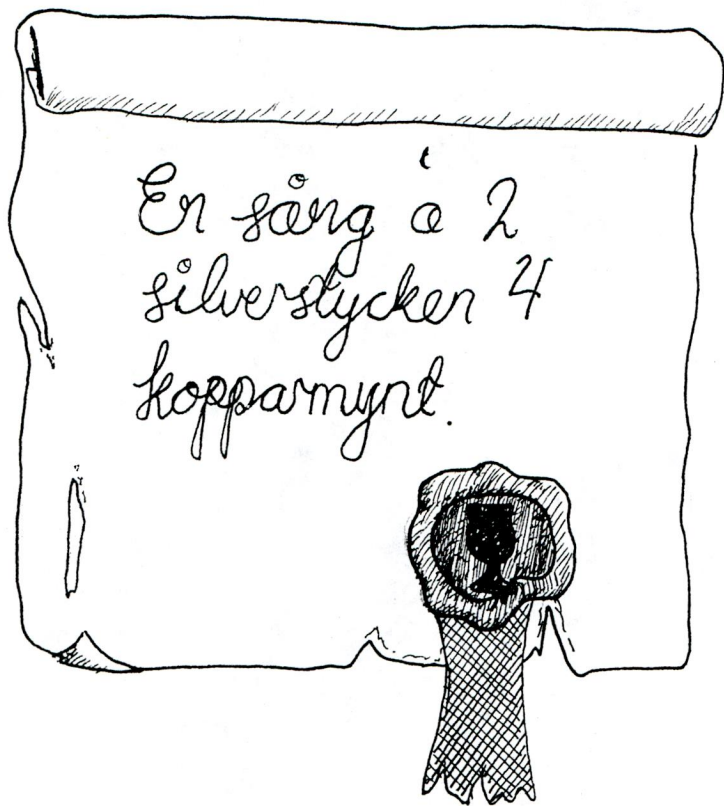 En sång á 2
silverstycken 4
kopparmynt.